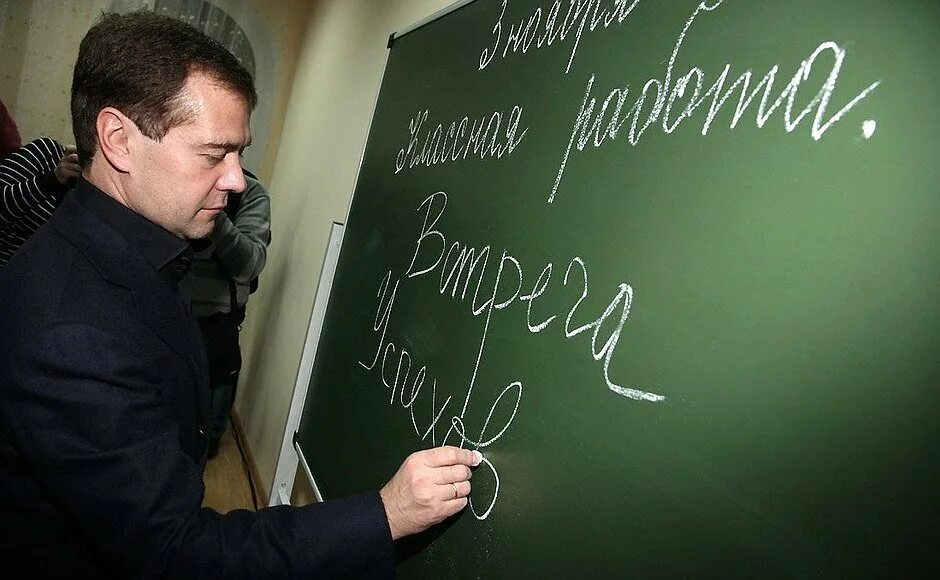 3 ноября
Классная работа.
Встрега
Успехов